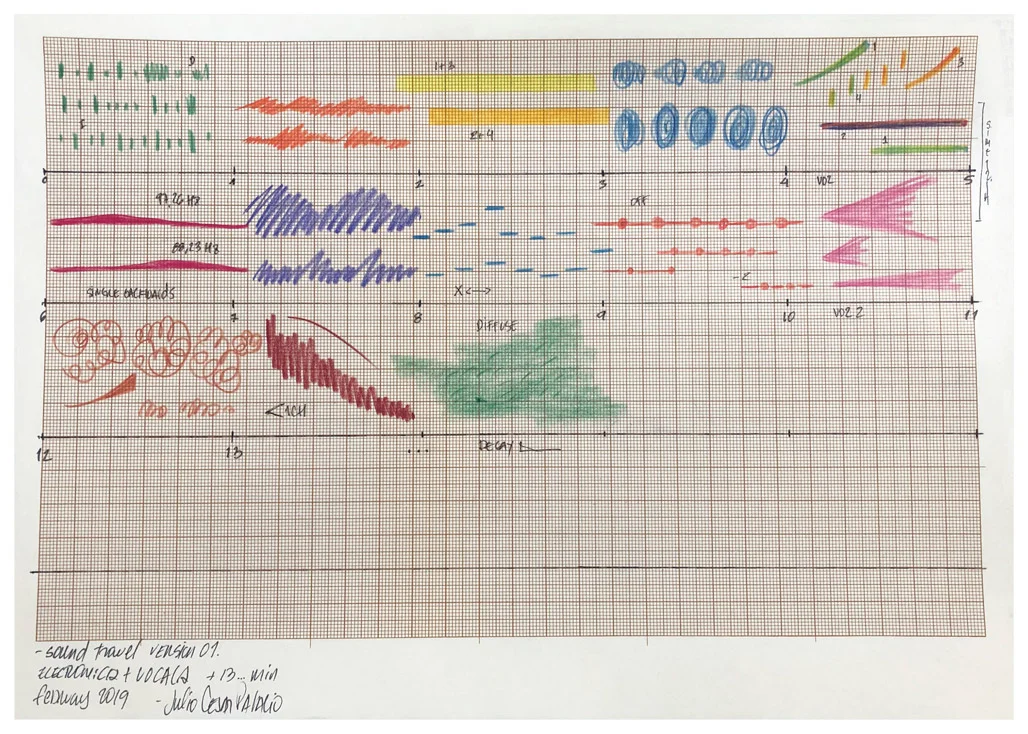 1
3
D
1+3
4
5
2+4
2
3
0
1
2
3
4
VOZ
5
97,26 HZ
OFF
88,23 HZ
-Z
SINGLE BACKWARDS
X <-->
6
7
8
9
10
VOZ 2
11
DIFFUSE
<1CH
12
13
...
DECAY
- sound travel version 01.
ELECTRONICA + VOCALS + 13... min
february 2019 - Julio Cesar Palacio